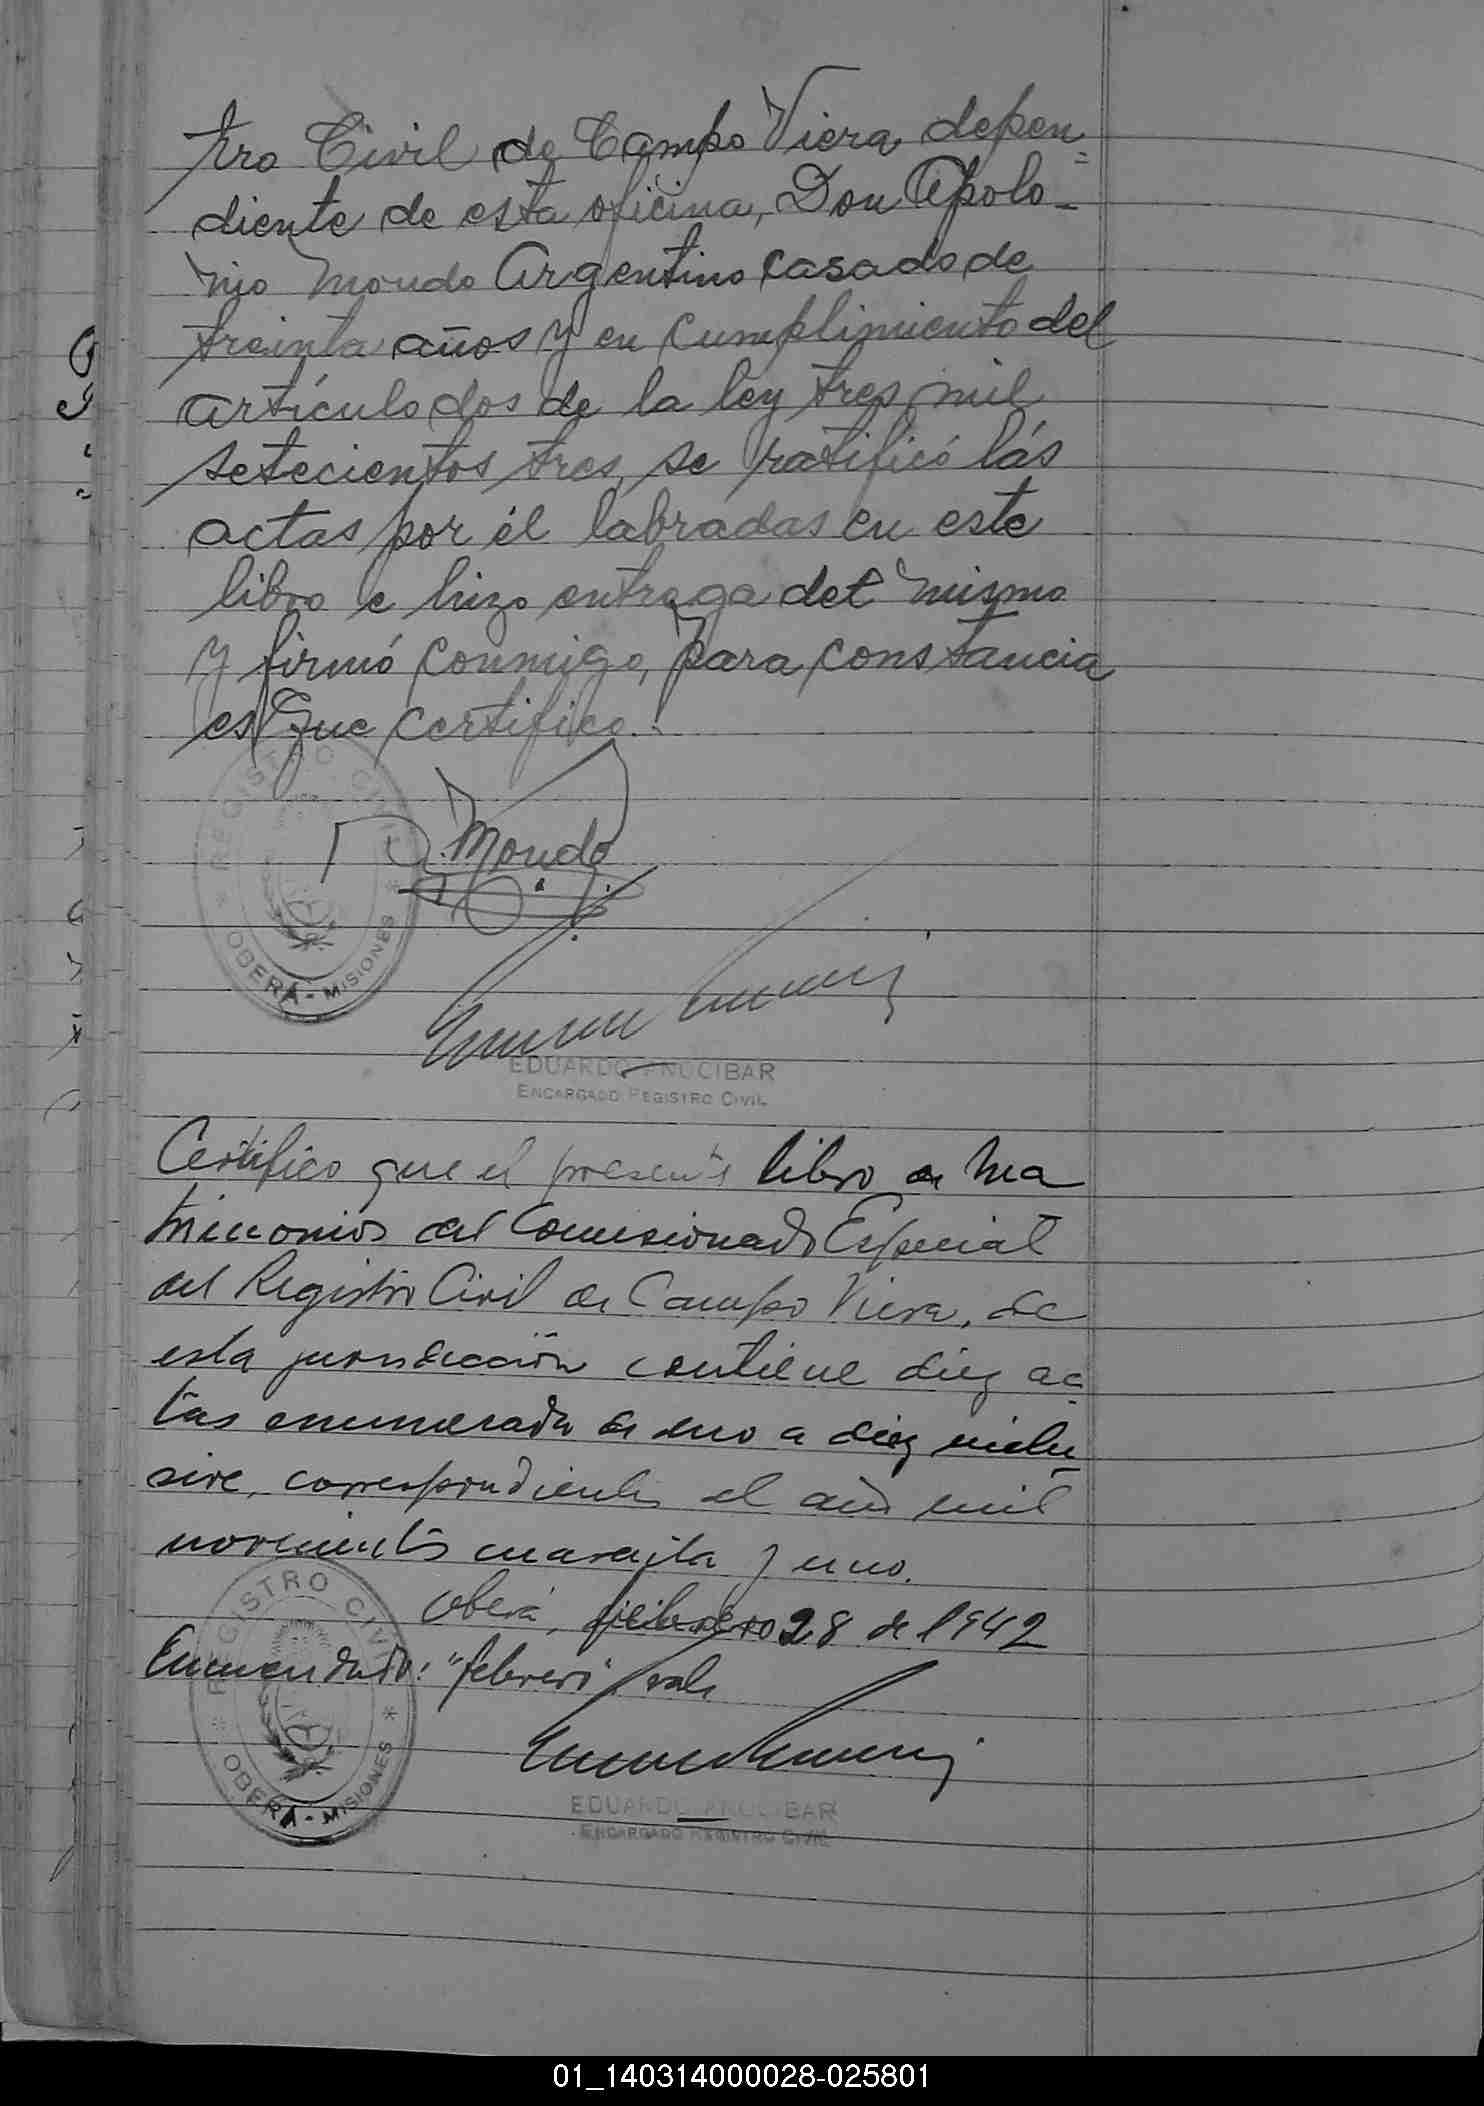 tro Civil de Campo Viera depen=
diente de esta oficina, Don Apolo-
nio Mondo Argentino casado de
treinta años y en cumplimiento del
artículo dos de la ley tres mil
setecientos tres, se ratificó lás
actas por él labradas en este
libro e hizo entrega del mismo
y firmó conmigo, para constancia
es que certifico.
REGISTRO CIVIL
* OBERÁ - MISIONES *
Mondo
EDUARDO ANOCIBAR
ENCARGADO REGISTRO CIVIL
Certifico que el presente libro de Ma
trimonios del Comisionado Especial
del Registro Civil de Campo Viera, de
esta jurisdicción contiene diez ac
tas enumeradas de uno a diez inclu
sive, correspondientes el año mil
novecientos cuarenta y uno.
Oberá, febrero 28 de 1942
Enmendado: "febrero" vale
REGISTRO CIVIL
* OBERÁ - MISIONES *
EDUARDO ANOCIBAR
ENCARGADO REGISTRO CIVIL
01_140314000028-025801